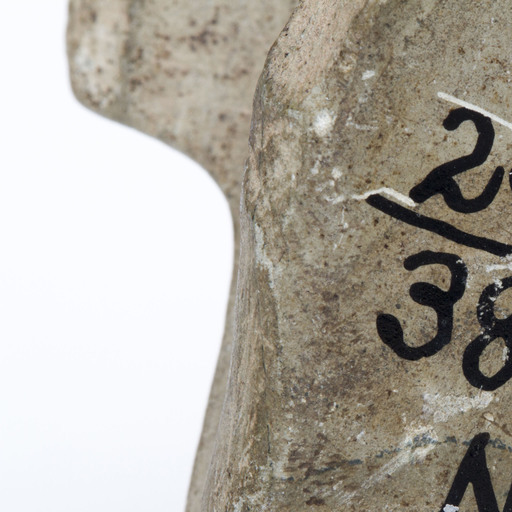 2
38
N